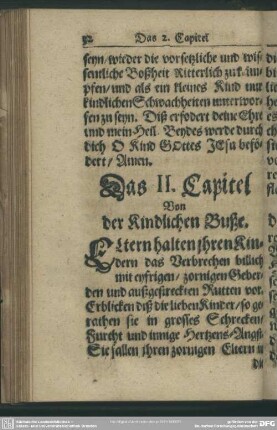 32 Das 2. Capitel
seyn/ wieder die vorsetzliche und wis-
sentliche Boßheit Ritterlich zu käm-
pfen/ und als ein kleines Kind nur
kindlichen Schwachheiten unterwor-
fen zu seyn. Diß erfodert deine Ehre
und mein Heil. Beydes werde durch
dich O Kind GOttes JEsu beför-
dert/ Amen.
Das II. Capitel
Von
der Kindlichen Busse.
ELtern halten ihren Kin-
dern das Verbrechen billich
mit eyfrigen/ zornigen Geber-
den und außgestreckten Rutten vor.
Erblicken diß die lieben Kinder/ so ge-
rathen sie in grosses Schrecken/
Furcht und innige Hertzens-Angst.
Sie fallen ihren zornigen Eltern
die